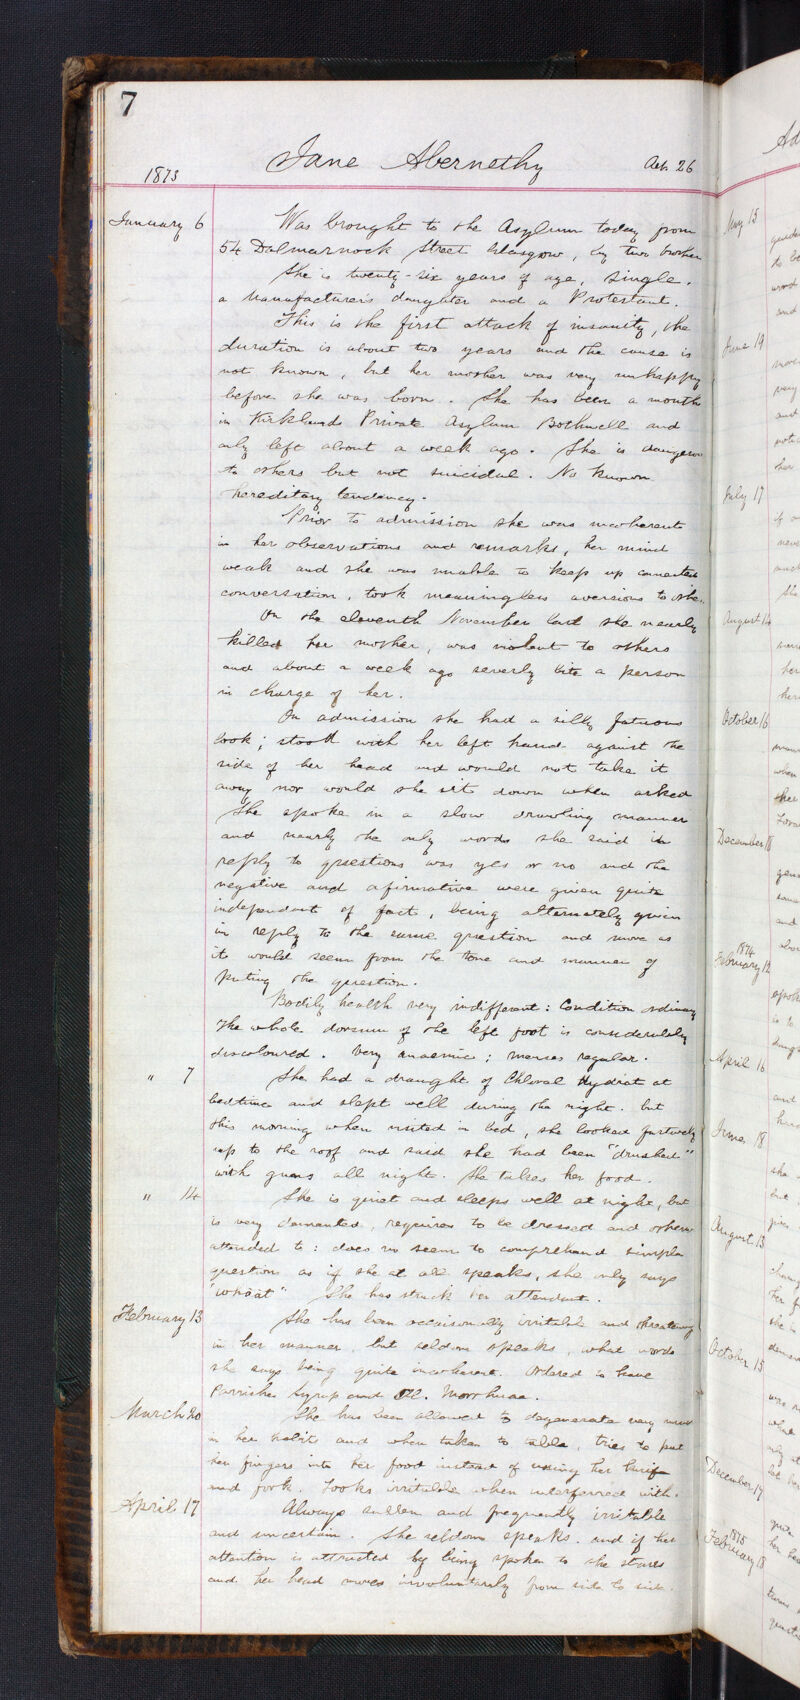 7
1873 Jane Abernethy Aet. 26
January 6 Was brought to the Asylum today from
54 Dalmarnock Street Glasgow, by two brothers
She is twenty-six years of age, single,
a Manufacturer's daughter and a Protestant.
This is the first attack of insanity, the
duration is about two years and the cause is
not known, but her mother was very unhappy
before she was born. She has been a month
in Kirklands Private Asylum Bothwell and
only left about a week ago. She is dangerous
to others but not suicidal. No known
hereditary tendency.
Prior to admission she was incoherent
in her observations and remarks, her mind
weak and she was unable to keep up connected
conversation, took meaningless aversions to
On the eleventh November last she nearly
killed her mother, was violent to others
and about a week ago severly bite a person
in charge of her.
On admission she had a silly fatuous
look; stood with her left hand against the
side of her head and would not take it
away nor would she sit down when asked
She spoke in a slow drawling manner
and nearly the only words she said in
reply to questions was yes or no and the
negative and afirmative were given quite
independant of fact, being alternately given
in reply to the same question and more as
it would seem from the tone and manner of
puting the question.
Bodily health very indifferent: Condition ordinary
The whole dorsum of the left foot is considerably
discoloured. Very anaemic; menses regular.
" 7 She had a draught of Chloral Hydrat at
bedtime and slept well during the night. but
this morning when visited in bed, she looked furtively
up to the roof and said she had been "drushed"
with guns all night. She takes her food.
" 14 She is quiet and sleeps well at night, but
is very demented, requires to be dressed and
attended to: does no seem to comprehend simple
question as if she at all speaks, she only says
"whaat" She has struck her attendant.
February 13 She has been occaisonally irritable and threatening
in her manner, but seldom speaks, what words
she says being quite incoherent. Ordered to have
Parrishes Syrup and Ol. Morrhuae.
March 20 She has been allowed to degenerate very much
in her habits and when taken to table, tries to put
her fingers into her food instead of using her knife
and fork. Looks irritable when interferred with.
April 17 Always sullen and frequently irritable
and uncertain. She seldom speaks. and if her
attention is attracted by being spoken to she stares
and her head moves involuntarily from side to side.
May 15
June 19
July 17
August 14
October 16
December 18
1874
February 12
April 16
June 18
August 13
October 15
December 17
1875
February 18